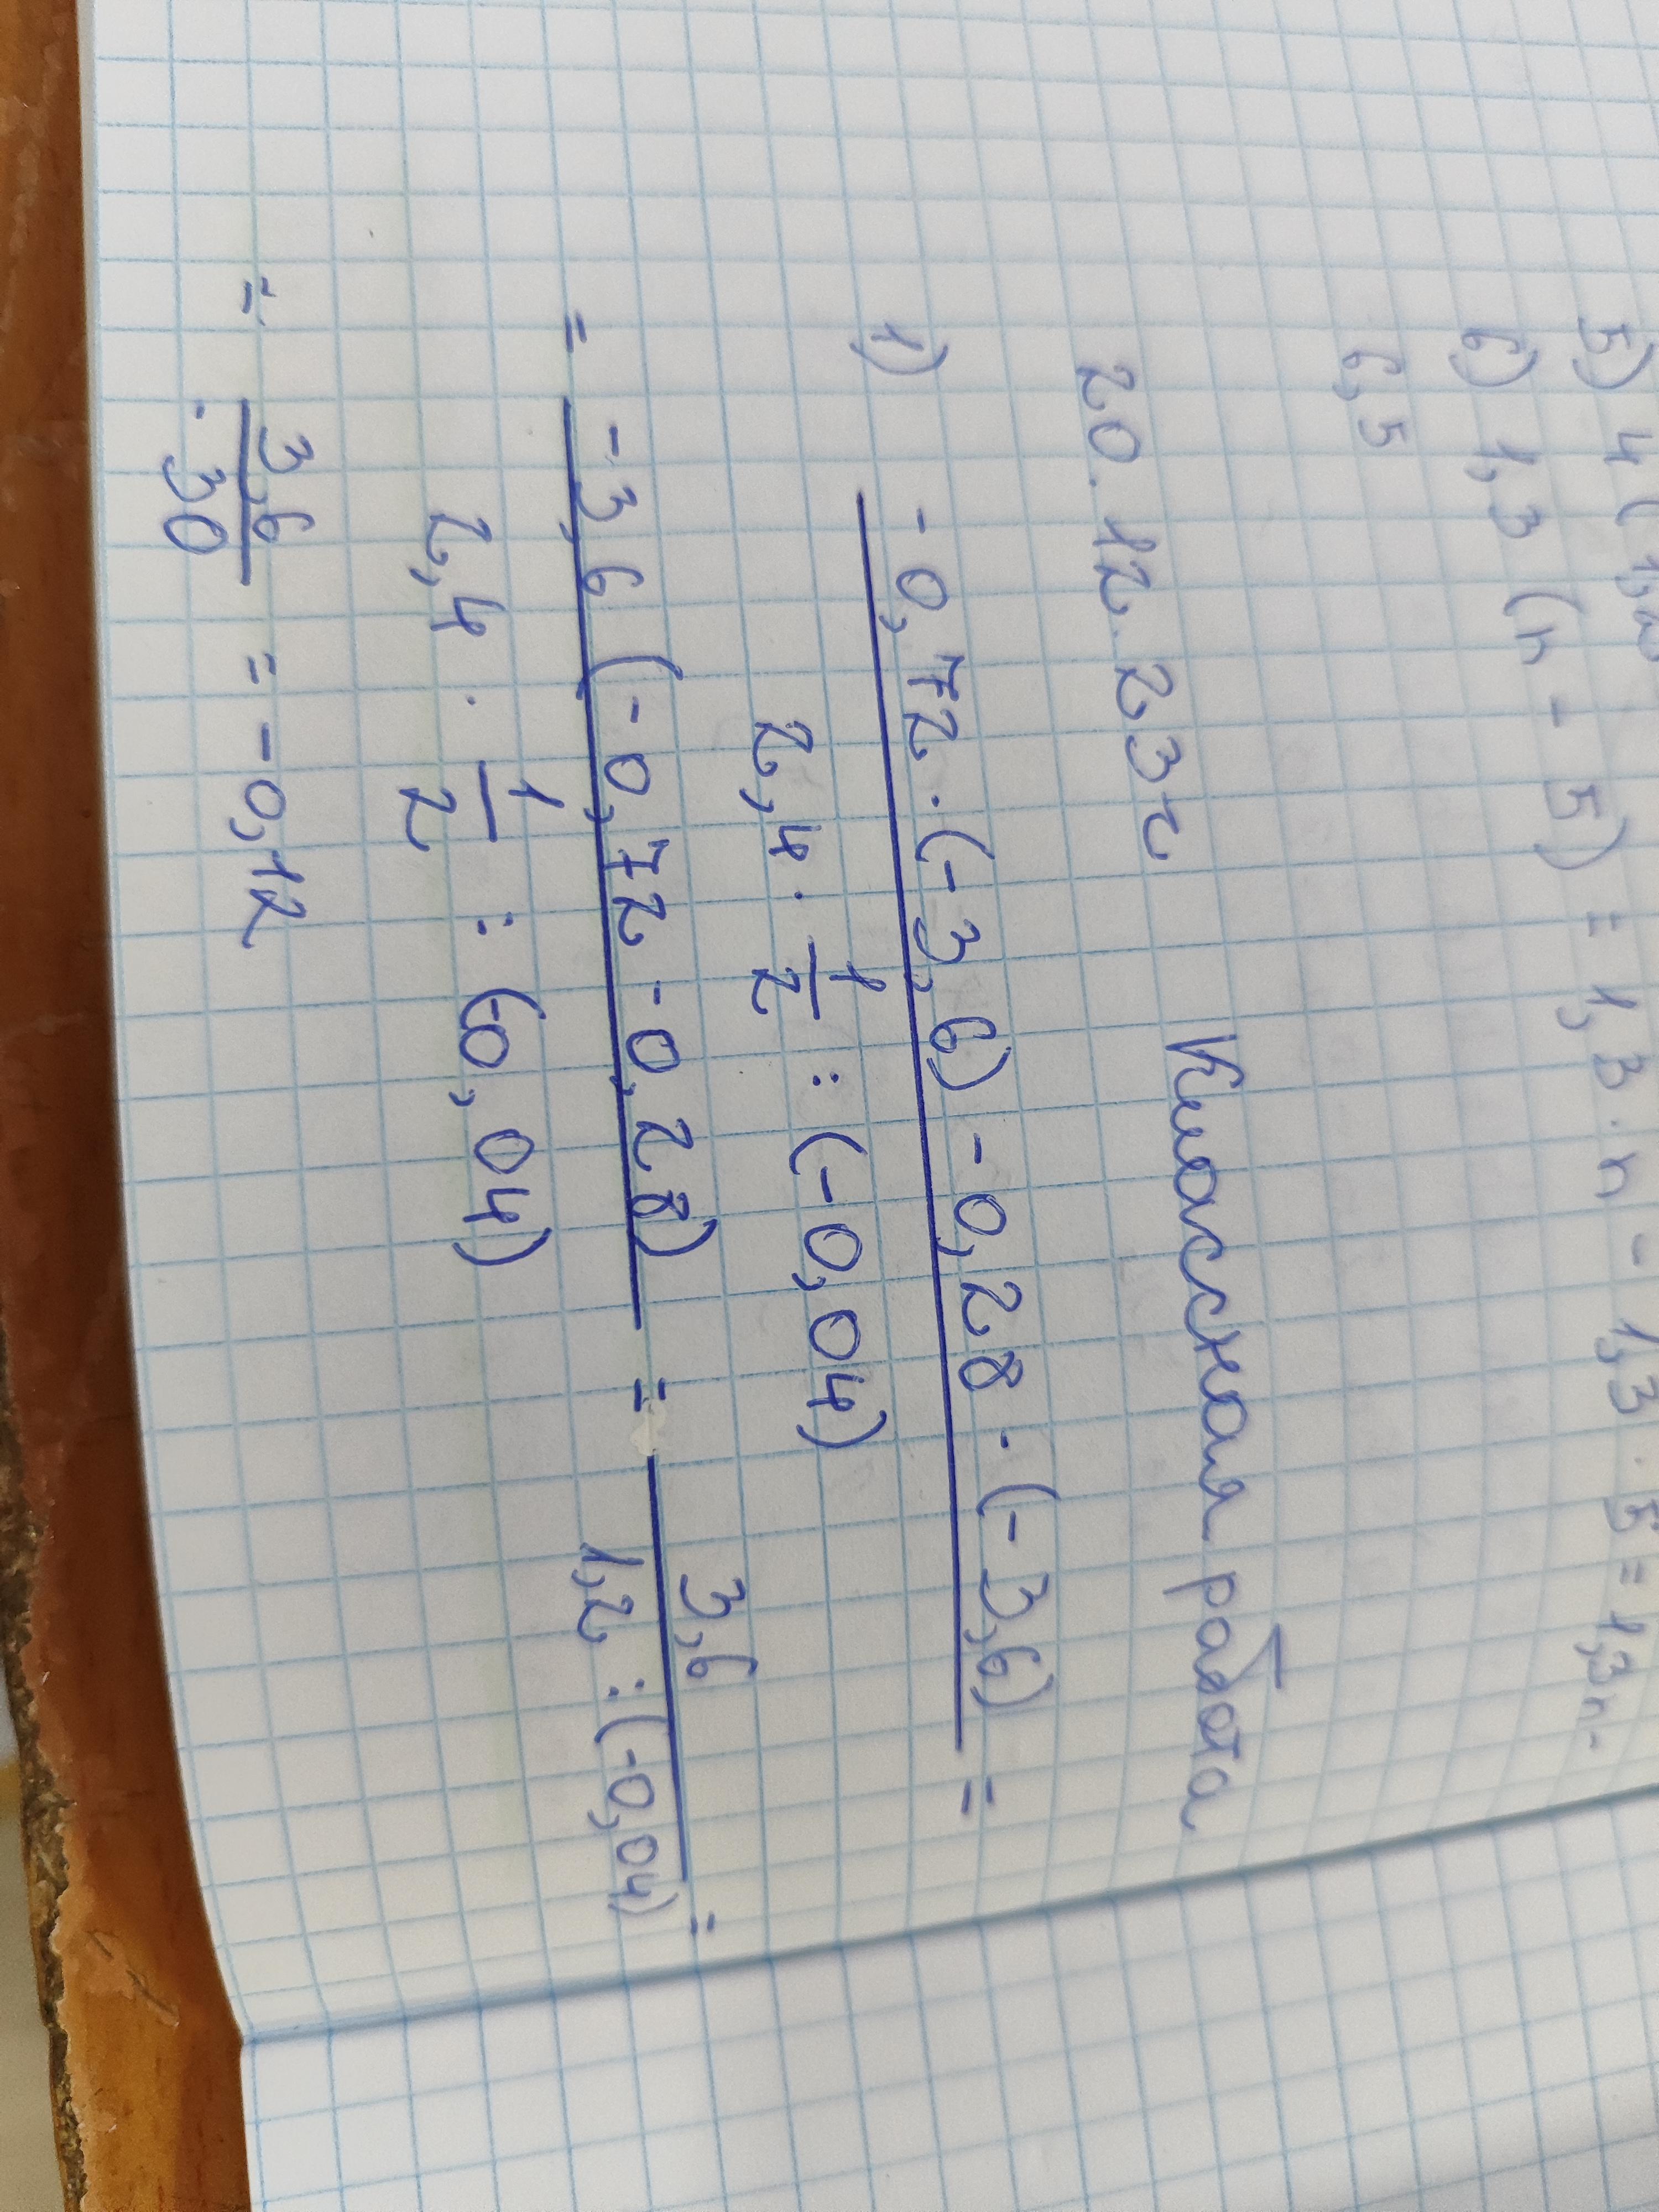 5) 4 (1,
6) 1,3 (n - 5) = 1,3 · n - 1,3 · 5 = 1,3n -
6,5
20.12.23г Классная работа
1) -0,72 · (-3,6) - 0,28 · (-3,6) =
2,4 · 1/2 : (-0,04)
= -3,6 (-0,72 - 0,28) = 3,6 =
2,4 · 1/2 : (-0,04) 1,2 : (-0,04)
= 3,6 = -0,12
-30